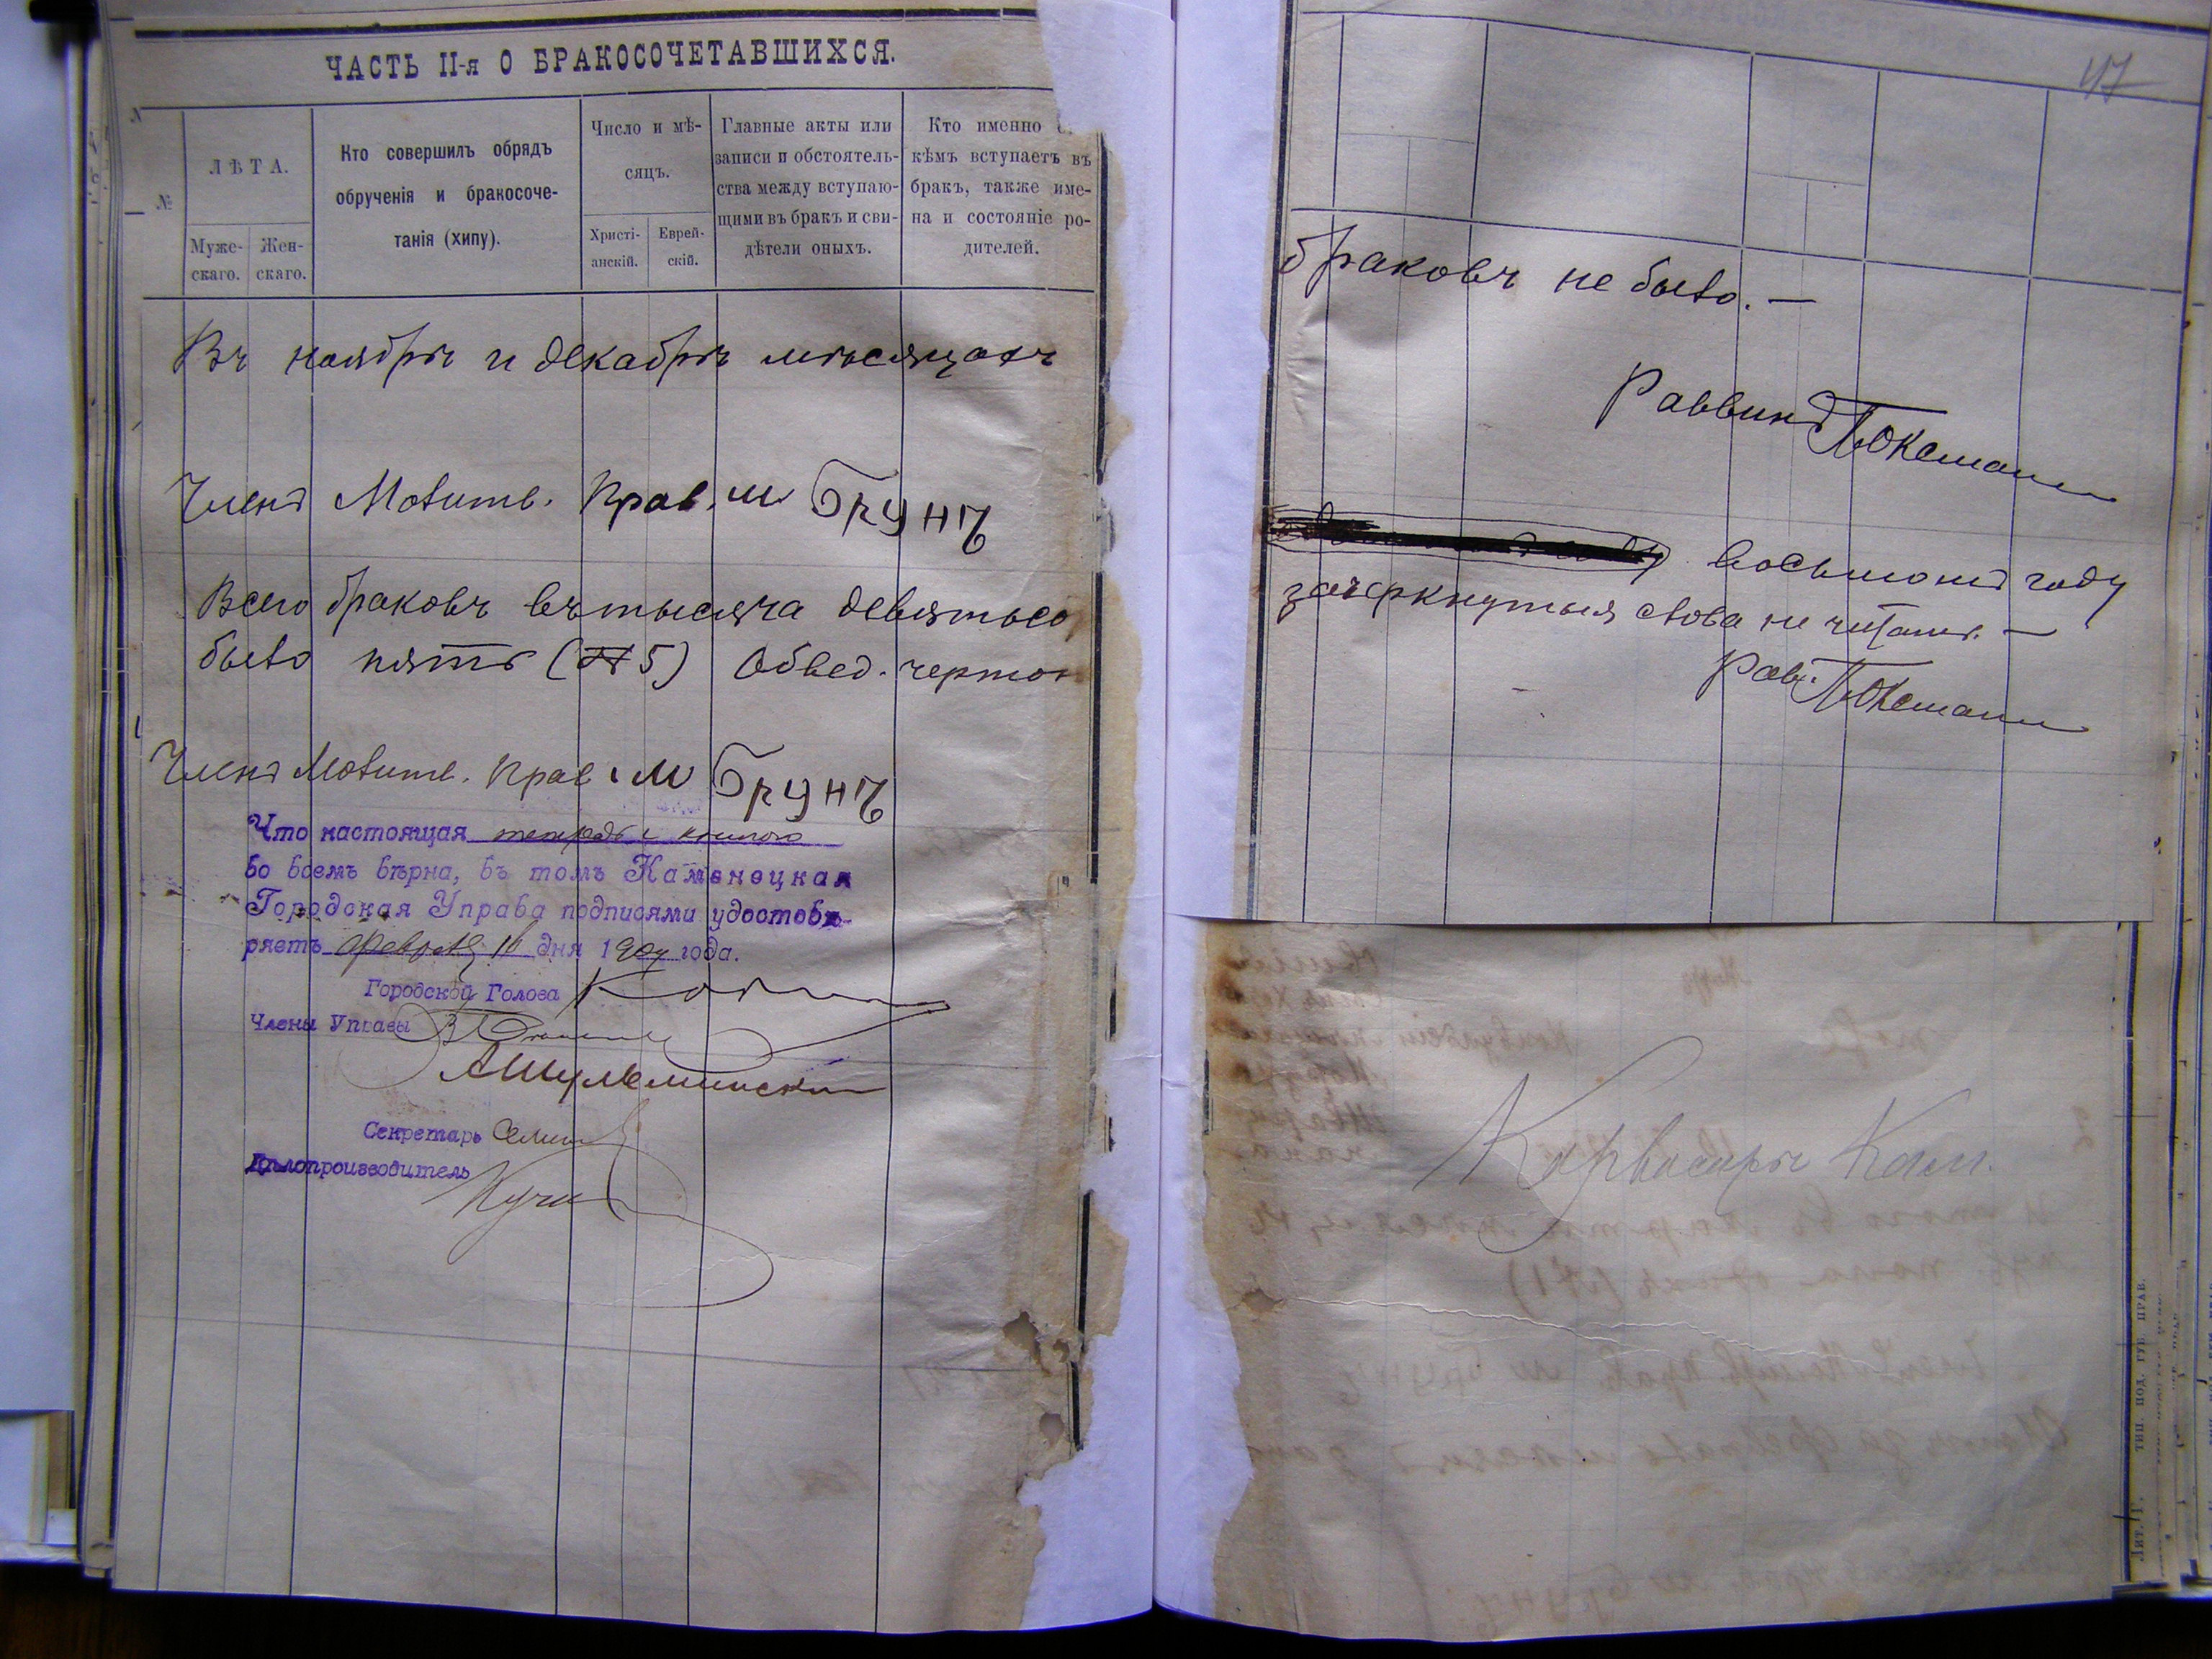 ЧАСТЬ II-я О БРАКОСОЧЕТАВШИХСЯ.
№
ЛѢТА.
Муже-
скаго.
Жен-
скаго.
Кто совершилъ обрядъ
обрученія и бракосоче-
танія (хипу).
Число и мѣ-
сяцъ.
Христі-
анскій.
Еврей-
скій.
Главные акты или
записи и обстоятель-
ства между вступаю-
щими въ бракъ и сви-
дѣтели оныхъ.
Кто именно
кѣмъ вступаетъ въ
бракъ, также име-
на и состояніе ро-
дителей.
Въ ноябрѣ и декабрѣ мѣсяцахъ
Членъ Молитв. Прав. М Брунъ
Всего браковъ въ тысяча девятьсо
было пять (№ 5) Обвед. чертою
Членъ Молитв. Прав. М Брунъ
Что настоящая тетрадь с книгою
во всемъ вѣрна, въ томъ Каменецкая
Городская Управа подписями удостовѣ-
ряетъ февраля 16 дня 1909 года.
Городской Голова
Члены Управы
Секретарь
Дѣлопроизводитель
47
браковъ не было. —
Раввинъ
восьмомъ году
зачеркнутыя слова не читать. —
Рав.
Карвасары Кам.
Лит. Г. ТИП. ПОД. ГУБ. ПРАВ.